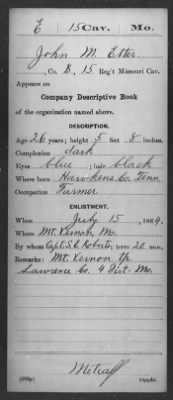 E | 15 Cav. | Mo.
John M. Etter
, Co. B, 15 Reg't Missouri Cav.
Appears on
Company Descriptive Book
of the organization named above.
DESCRIPTION.
Age 26 years; height 5 feet 8 inches.
Complexion dark
Eyes blue; hair black
Where born Hawkens Co. Tenn.
Occupation Farmer
ENLISTMENT.
When July 15, 1864.
Where Mt. Vernon, Mo.
By whom Capt. S. E. Roberts; term 20 mos.
Remarks: Mt. Vernon
Lawrence Co. 4 Dist. Mo.
Metcalf
Copyist.